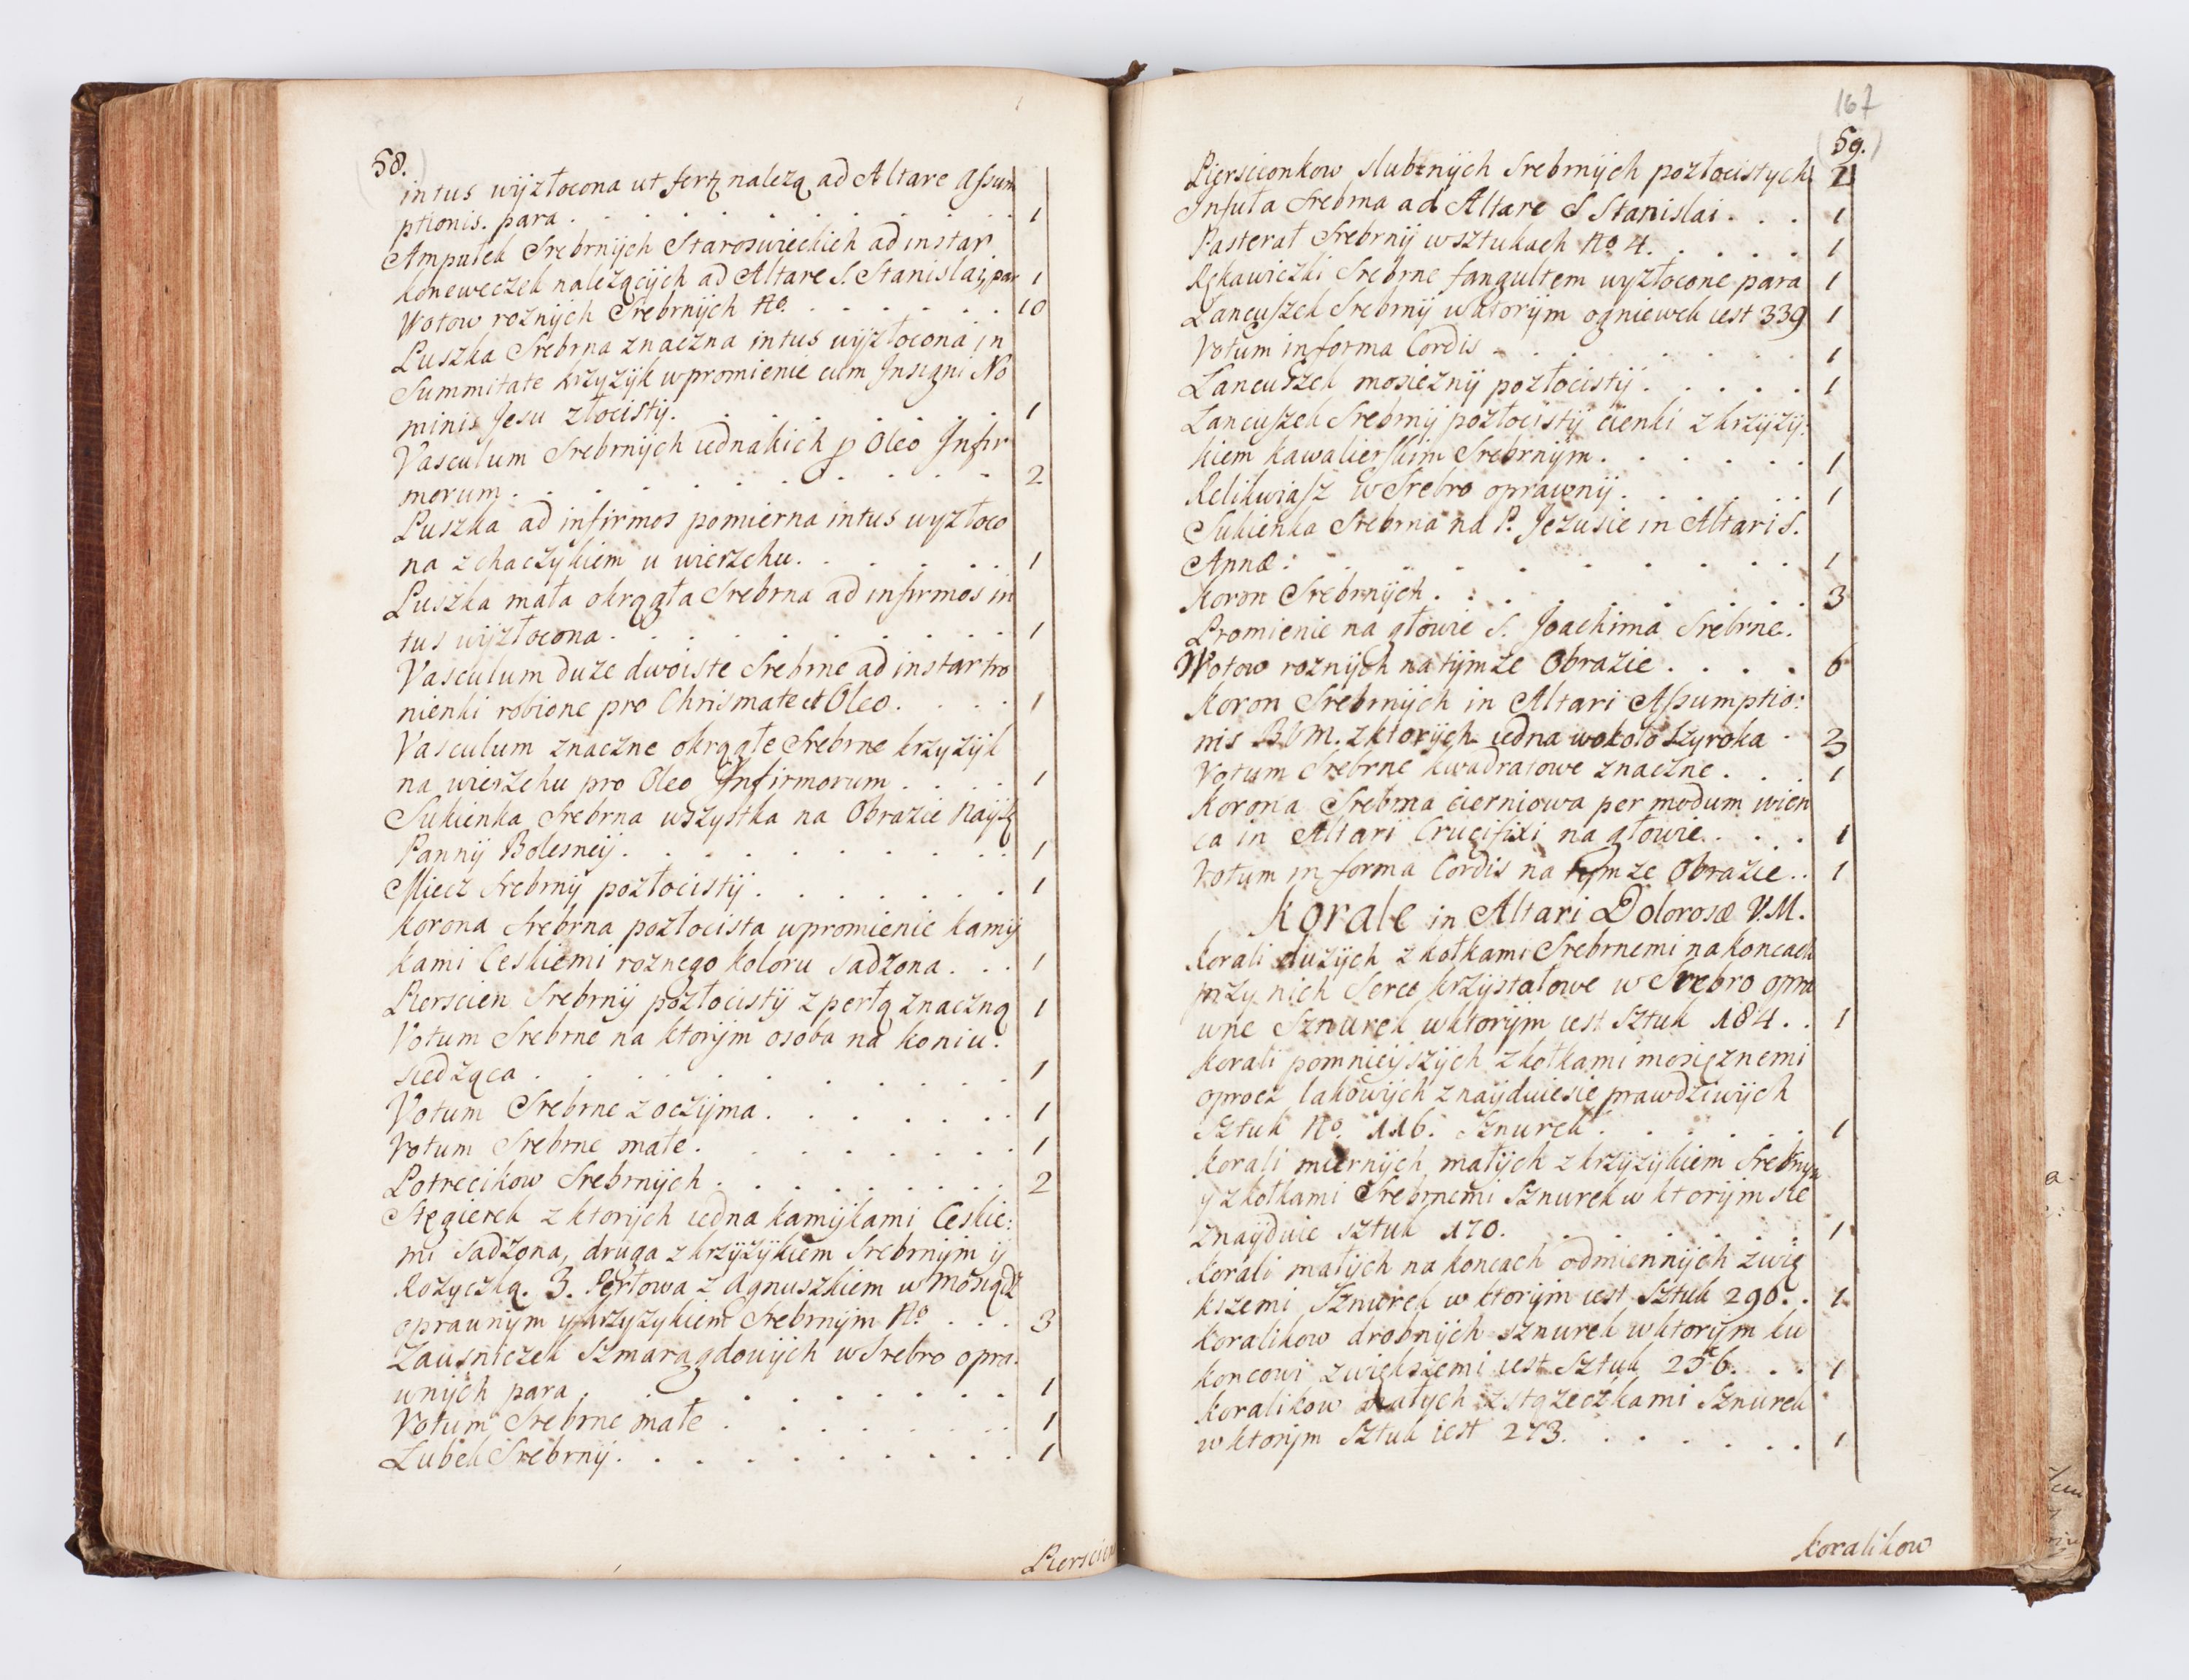 58.
intus wyzłocona ut fert należą ad Altare Assum
ptionis. para . . . . . . . . . . 1
Ampułek Srebrnych Staroswieckich ad instar
koneweczek należących ad Altare S. Stanislai, par 1
Wotow roznych Srebrnych No. . . . . . . 10
Puszka Srebrna znaczna intus wyzłocona in
Summitate krzyzyk w promienie cum Insigni No
minis Jesu złocisty. . . . . . . . . 1
Vasculum Srebrnych iednakich p Oleo Infir
morum . . . . . . . . . . . 2
Puszka ad infirmos pomierna intus wyzłoco
na z chaczykiem u wierzchu. . . . . . 1
Puszka mała okrągła Srebrna ad infirmos in
tus wyzłocona . . . . . . . . . . 1
Vasculum duze dwoiste Srebrne ad instar tro
nienki robione pro Chrismate et Oleo. . . . 1
Vasculum znaczne okrągłe Srebrne krzyzyk
na wierzchu pro Oleo Infirmorum . . . . 1
Sukienka Srebrna wszystka na Obrazie Nayś
Panny Bolesney. . . . . . . . . . 1
Miecz Srebrny pozłocisty . . . . . . . 1
Korona Srebrna pozłocista w promienie kamy
kami Ceskiemi roznego koloru sadzona . . . 1
Pierscien Srebrny pozłocisty z perłą znaczną 1
Votum Srebrne na ktorym osoba na koniu.
siedząca . . . . . . . . . . . 1
Votum Srebrne z oczyma . . . . . . . 1
Votum Srebrne małe . . . . . . . . 1
Potrecikow Srebrnych . . . . . . . . 2
Stęgierek z ktorych iedna kamykami Ceskie:
mi sadzona, druga z krzyzykiem Srebrnym y
Rożyczką. 3. Perłowa z Agnuszkiem w Mosiądz
oprawnym y krzyzykiem Srebrnym No . . . 3
Zausniczek Szmaragdowych w Srebro opra:
wnych para . . . . . . . . . . 1
Votum Srebrne małe . . . . . . . . 1
Lubek Srebrny . . . . . . . . . . 1
Pierscien
167
59.
Pierscionkow slubnych Srebrnych pozłocistych
Infuła Srebrna ad Altare S. Stanislai . . . 1
Pasterał Srebrny w sztukach No 4. . . . . 1
Rękawiczki Srebrne fangultem wyzłocone para 1
Łancuszek Srebrny w ktorym ogniewek iest 339 1
Votum in forma Cordis . . . . . . . . 1
Łancuszek mosiezny pozłocisty . . . . . 1
Łancuszek Srebrny pozłocisty cienki z krzyzy:
kiem kawalierskim Srebrnym . . . . . . 1
Relikwiasz w Srebro oprawny . . . . . . 1
Sukienka Srebrna na P. Jezusie in Altari S.
Annæ: . . . . . . . . . . . 1
Koron Srebrnych . . . . . . . . . 3
Promienie na głowie S. Joachima Srebrne.
Wotow roznych na tymze Obrazie . . . . 6
Koron Srebrnych in Altari Assumptio:
nis BVM. z ktorych iedna wokoło szyroka . 3
Votum Srebrne kwadratowe znaczne . . . 1
Korona Srebrna cierniowa per modum wien
ca in Altari Crucifixi na głowie . . . . 1
Votum in forma Cordis na tymze Obrazie . . 1
Korale in Altari Dolorosæ V.M.
Korali duzych z kołkami Srebrnemi na koncach
przy nich Serce krzyształowe w Srebro opra
wne Sznurek w ktorym iest Sztuk 184 . . 1
Korali pomnieyszych z kołkami mosięznemi
oprocz lakowych znayduiesie prawdziwych
Sztuk No. 116. Sznurek . . . . . . 1
Korali miernych małych z krzyzykiem Srebrnym
y z kołkami Srebrnemi Sznurek w ktorym sie
znayduie sztuk 170. . . . . . . . 1
Korali małych na koncach odmiennych z wię
kszemi Sznurek w ktorym iest Sztuk 290. . 1
Koralikow drobnych sznurek w ktorym ku
koncowi z wiekszemi iest Sztuk 256. . . 1
Koralikow małych z stązeczkami Sznurek
w ktorym Sztuk iest 273. . . . . . . 1
Koralikow